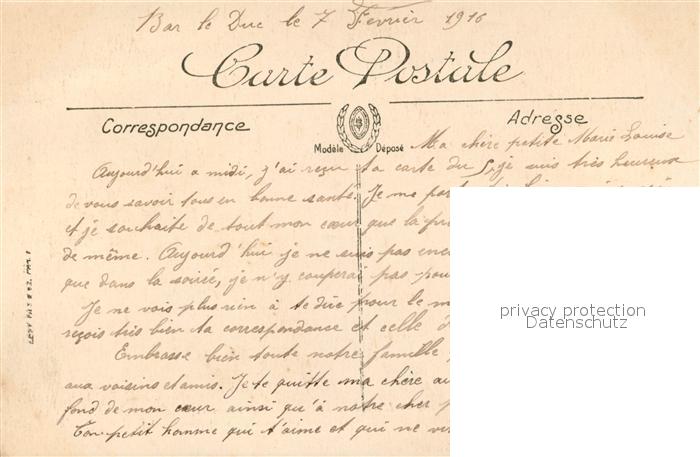 Bar le Duc le 7 Fevrier 1916
Carte Postale
Correspondance
Adresse
Modèle Déposé
Ma chère petite Marie Louise
Aujourd'hui a midi, j'ai reçu ta carte du 5, je suis très heureux
de vous savoir tous en bonne santé. Je me
et je souhaite de tout mon cœur que la
de même. Aujourd'hui je ne suis pas
que dans la soirée, je n'y couperai pas
Je ne vois plus rien à te dire pour le
reçois très bien ta correspondance et celle
Embrasse bien toute notre famille
aux voisins et amis. Je te quitte ma chère
fond de mon cœur ainsi qu'à notre cher
Ton petit homme qui t'aime et qui ne
privacy protection
Datenschutz